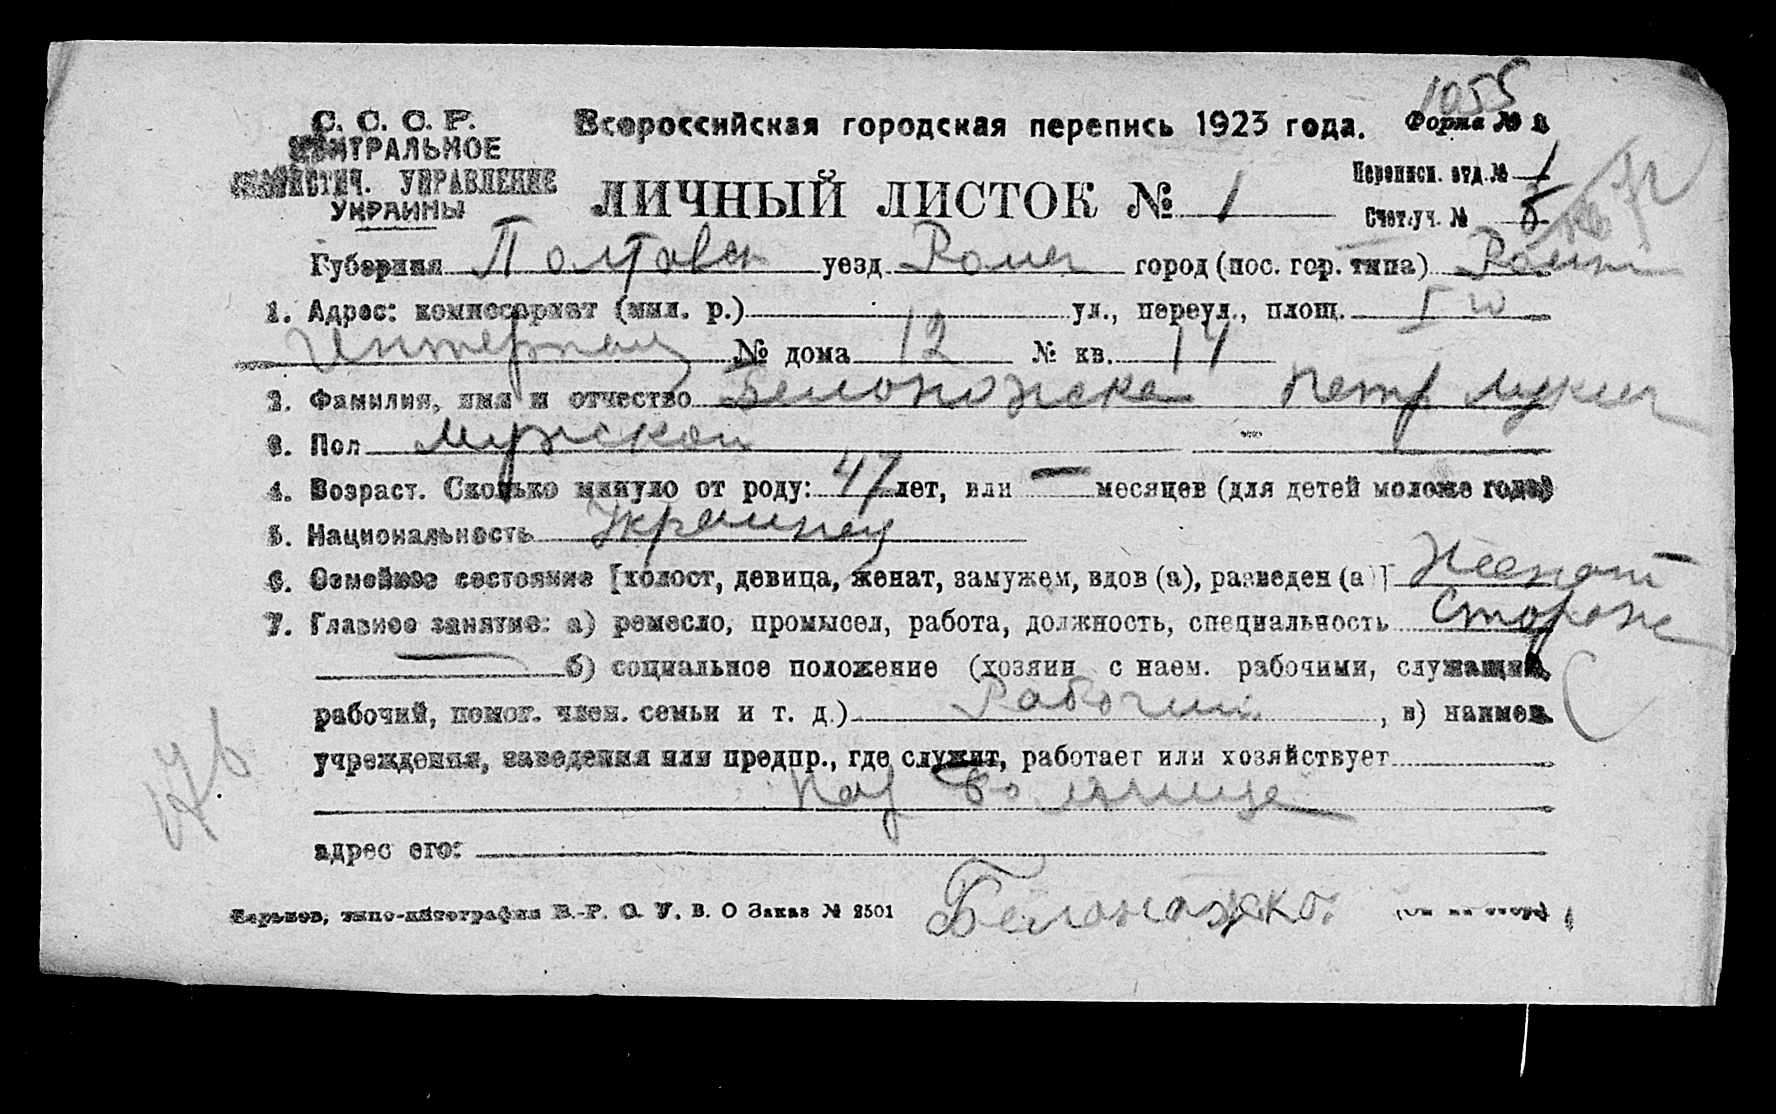 1055
С. С. С. Р.
ЦЕНТРАЛЬНОЕ
СТАТИСТИЧ. УПРАВЛЕНИЕ
УКРАИНЫ
Всероссийская городская перепись 1923 года.
Форма №
Переписн. отд. № 1
ЛИЧНЫЙ ЛИСТОК № 1
Счет. уч. № 5
Губерния Полтавск уезд Ромен город (пос. гор. типа) Ромны
1. Адрес: комиссариат (мил. р.) ул., переул., площ. I го
Интернац № дома 12 № кв. 14
2. Фамилия, имя и отчество Белоножска Петр Лукич
3. Пол мужской —
4. Возраст. Сколько минуло от роду: 47 лет, или — месяцев (для детей моложе года)
5. Национальность Украинец
6. Семейное состояние [холост, девица, женат, замужем, вдов (а), разведен (а)] Женат
7. Главное занятие: а) ремесло, промысел, работа, должность, специальность Сторож
— б) социальное положение (хозяин с наем. рабочими, служащий,
рабочий, помог. член. семьи и т. д.) Рабочий, в) наимен.
учреждения, заведения или предпр., где служит, работает или хозяйствует
больнице
адрес его:
Харьков, типо-литография В. О Заказ № 2501
Белоножко